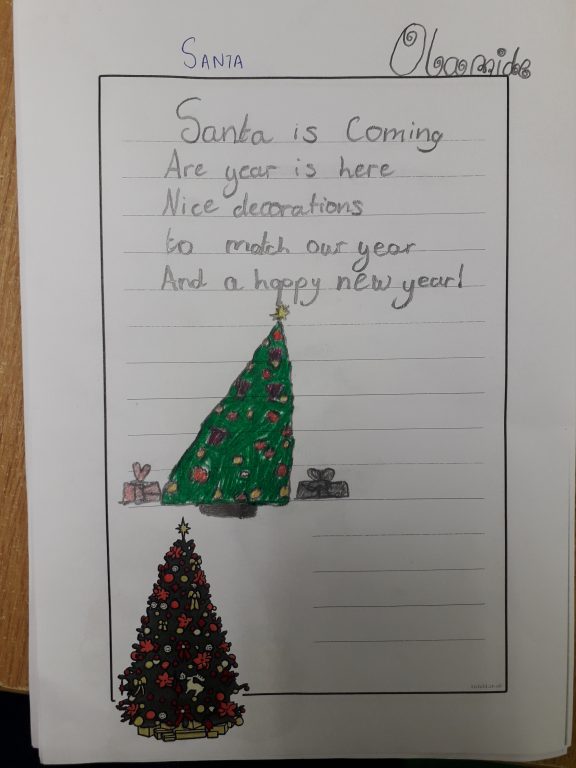 SANTA
Obaamide
Santa is Coming
Are year is here
Nice decorations
to match our year
And a happy new year!